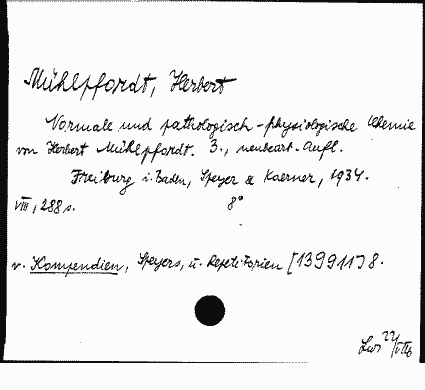 Mühlpfordt, Herbert
Normale und pathologisch-physiologische Chemie
von Herbert Mühlpfordt. 3., neubearb. Aufl.
Freiburg i. Baden, Speyer & Kaerner, 1934.
VIII, 288 s. 8°
v. Kompendien, Speyers, u. Repetitorien [139911] 8.